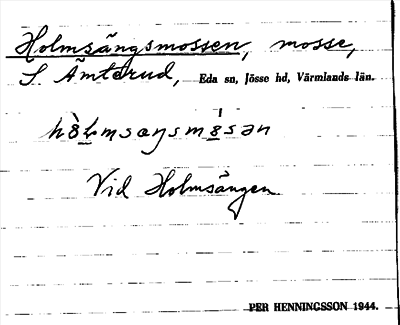 Holmsängsmossen, mosse,
S Ämterud, Eda sn, Jösse hd, Värmlands län.
Vid Holmsängen
PER HENNINGSSON 1944.